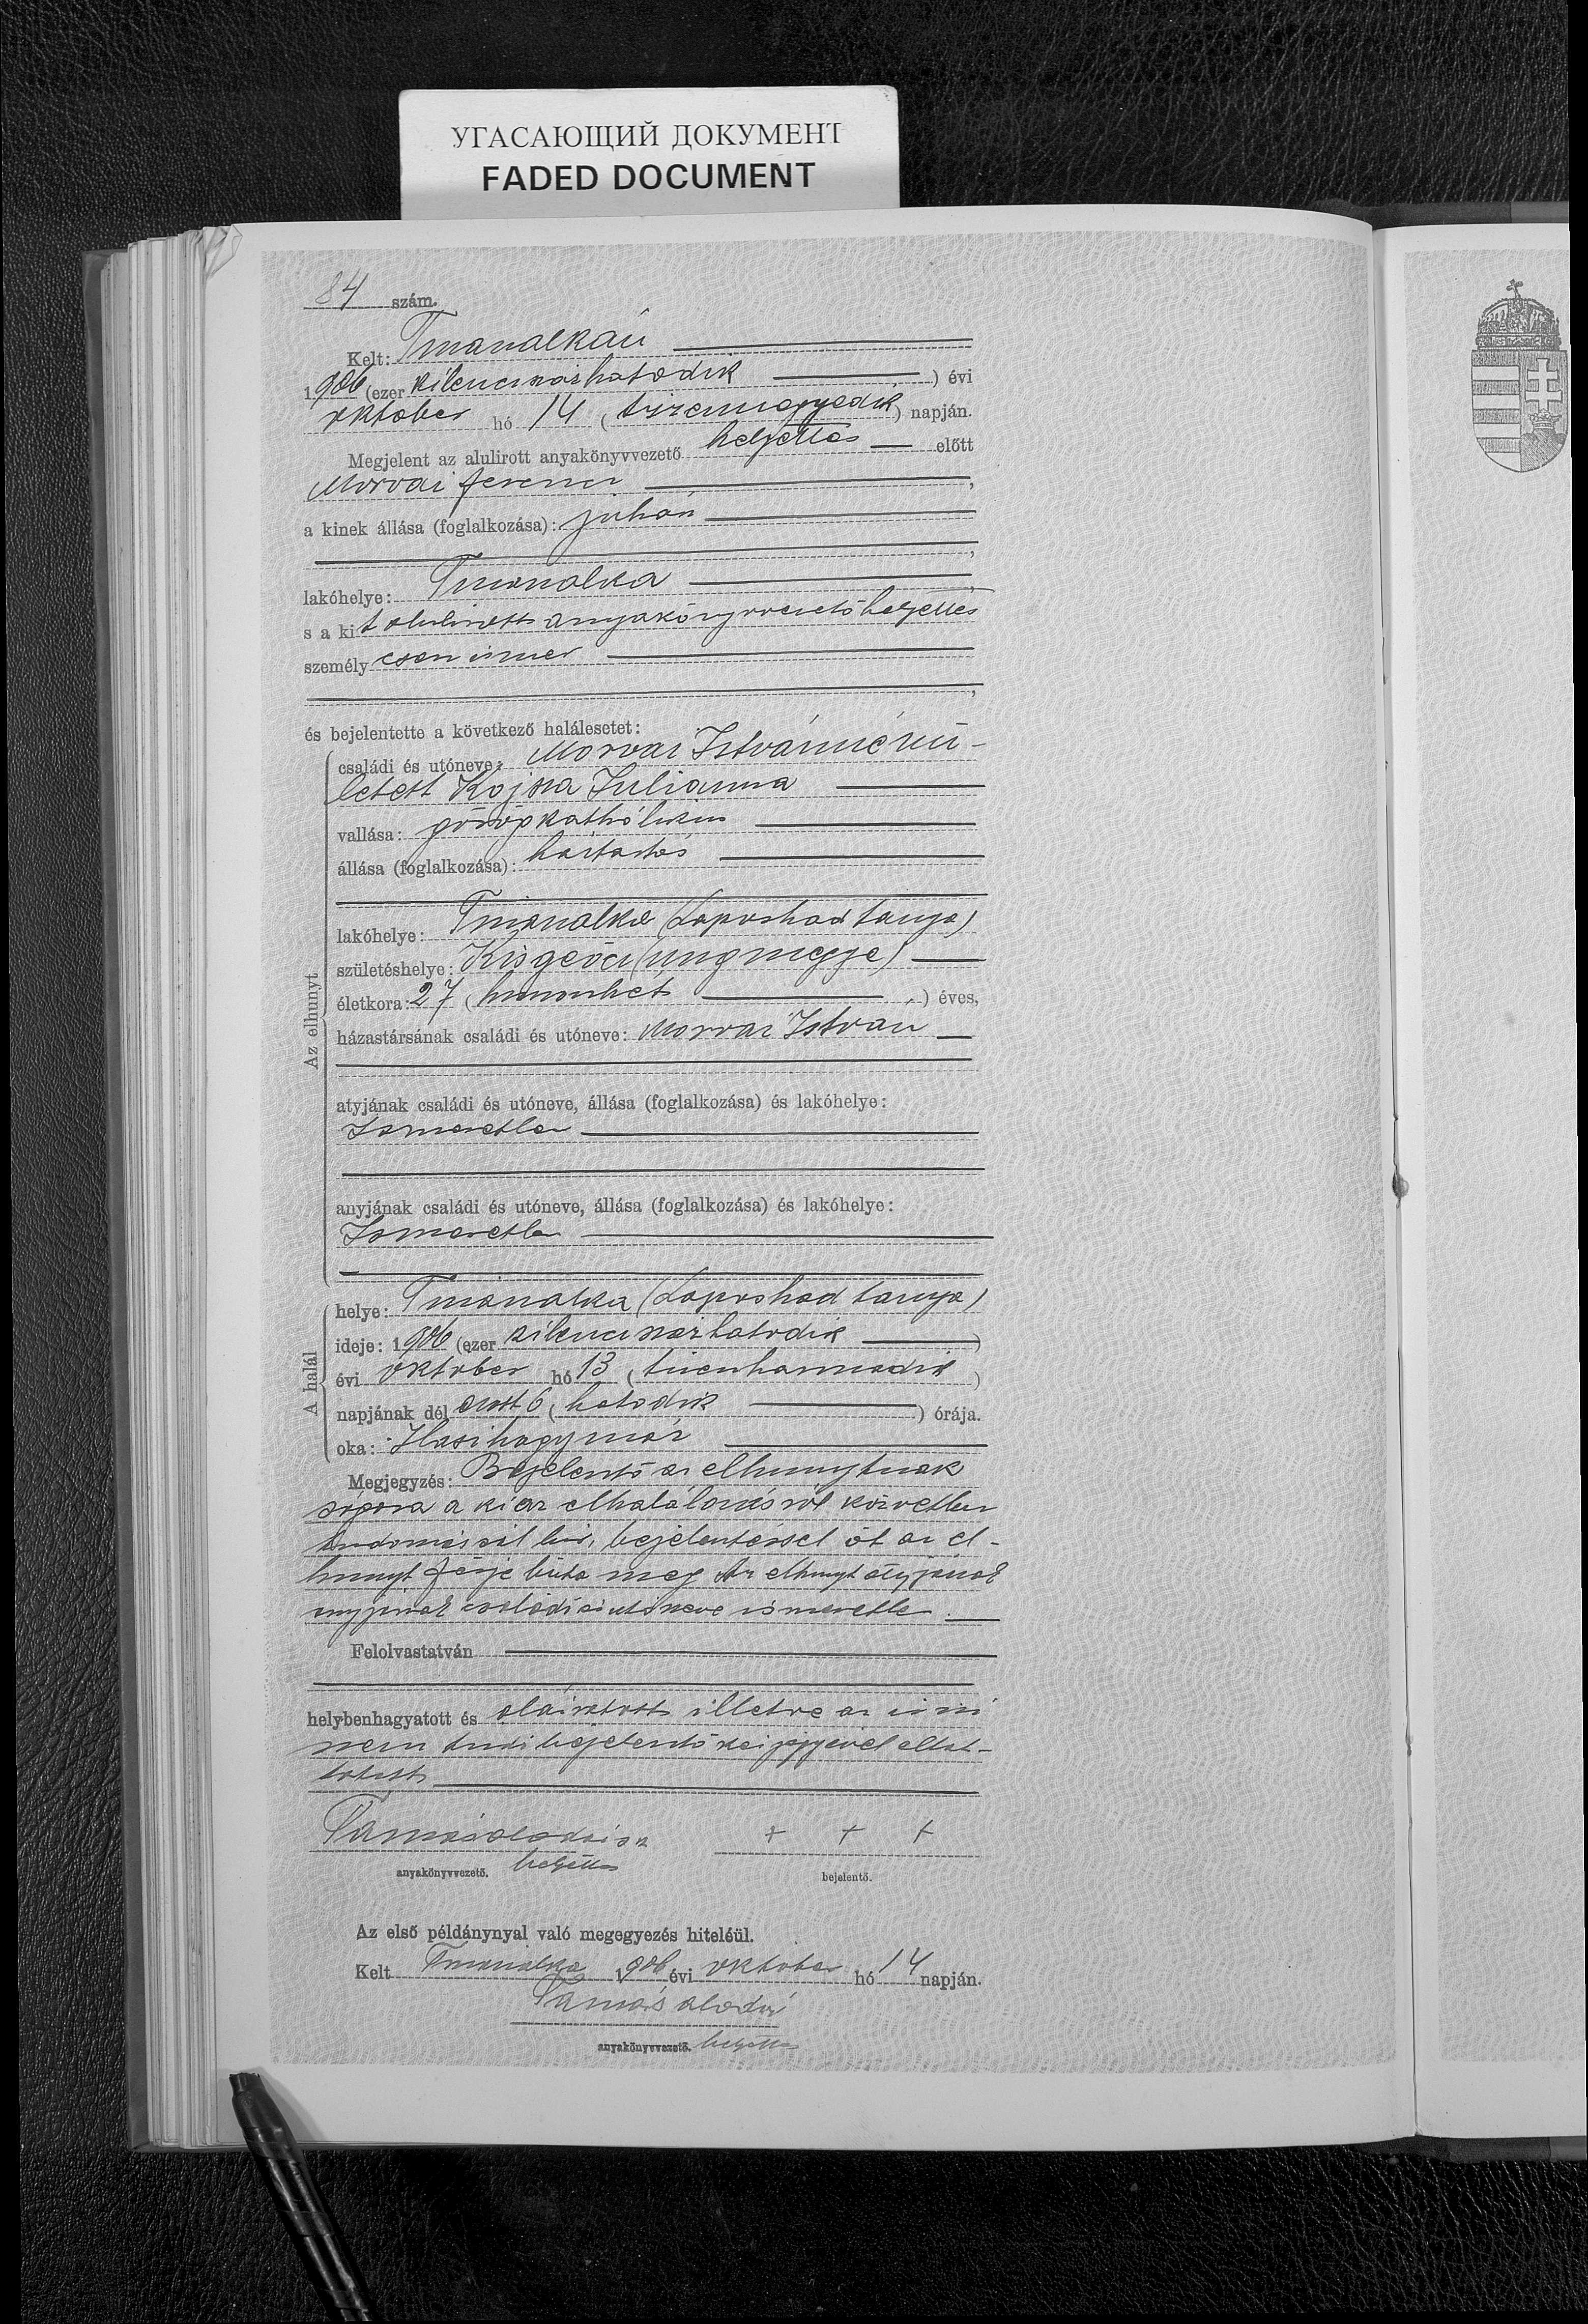 УГАСАЮЩИЙ ДОКУМЕНТ
FADED DOCUMENT
84 szám.
Kelt: Tornanalkán
1906 (ezer kilencszázhatodik) évi
oktober hó 14 (tizennegyedik) napján.
Megjelent az alulirott anyakönyvvezető helyettes előtt
Morvai Ferencz,
a kinek állása (foglalkozása): juhász
lakóhelye:
s a kit alulirott anyakönyvvezető helyettes
személyesen ismer,
és bejelentette a következő halálesetet:
Az elhunyt
családi és utóneve: Morvai Istvánné szü-
letett Kojsza Julianna
vallása: görögkathólikus
állása (foglalkozása): háztartás
lakóhelye: (Laposhad tanya)
születéshelye: Kisgeőcz (ungmegye)
életkora: 27 (huszonhét) éves,
házastársának családi és utóneve: Morvai István
atyjának családi és utóneve, állása (foglalkozása) és lakóhelye:
Ismeretlen
anyjának családi és utóneve, állása (foglalkozása) és lakóhelye:
Ismeretlen
A halál
helye: (Laposhad tanya)
ideje: 1906 (ezer kilenczszázhatodik)
évi oktober hó 13 (tizenharmadik)
napjának dél előtt 6 (hatodik) órája.
oka: Hasihagymáz
Megjegyzés: Bejelentő az elhunytnak
sógora a ki az elhalálozásról közvetlen
tudomással bir, bejelentéssel őt az el-
hunyt férje bizta meg Az elhunyt atyjának
anyjának családi és utóneve ismeretlen.
Felolvastatván
helybenhagyatott és aláiratott illetve az irni
nem tudó bejelentő kézjegyével ellát-
tatott
Tamás
+ + +
anyakönyvvezető. helyettes
bejelentő.
Az első példánynyal való megegyezés hiteléül.
Kelt 1906 évi oktober hó 14 napján.
Tamás
anyakönyvvezető. helyettes